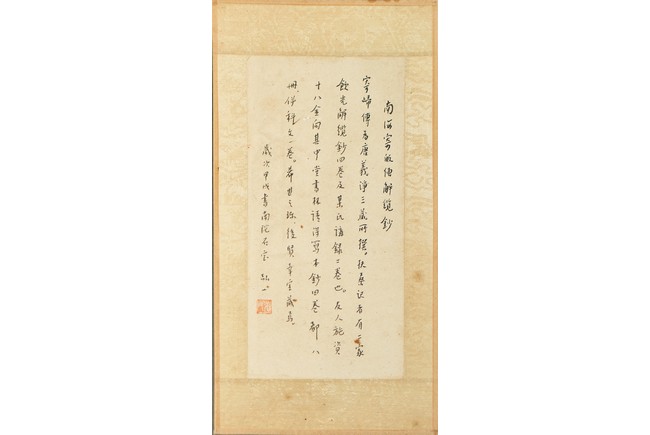 南海寄歸傳解纜鈔
寄歸傳爲唐義淨三藏所撰。扶桑記者有二家
飲光解纜鈔四卷及某氏講錄二卷也。友人施資
十八金向其中堂書林請得寫本鈔四卷都八
冊，併釋文一卷。希世之珍，後賢幸寶藏焉。
歲次甲戌書南院石室